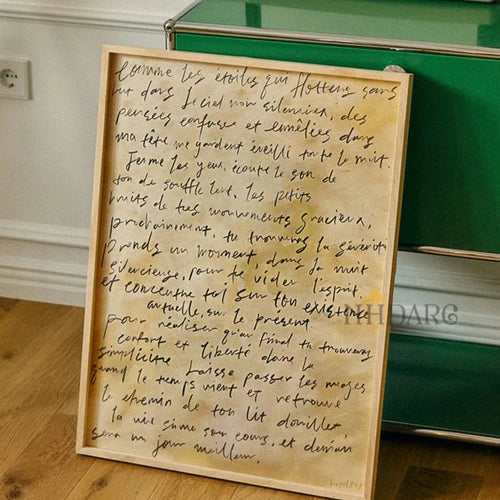 Comme les étoiles qui flottent sans
but dans le ciel noir silencieux, des
pensées confuses et emêlées dans
ma tête me gardent éveillé toute la nuit.
Ferme les yeux, écoute le son de
ton de souffle lent, les petits
bruits de tes mouvements gracieux,
prochainement, tu trouveras la sérénité
prends un moment, dans la nuit
silencieuse, pour te vider l'esprit
et concentre toi sur ton existence
actuelle, sur le présent
pour réaliser qu'au final tu trouveras
confort et liberté dans la
simplicité. Laisse passer les nuages
quand le temps vient et retrouve
le chemin de ton lit douillet
la vie suit son cours, et demain
sera un jour meilleur.
HHDARG